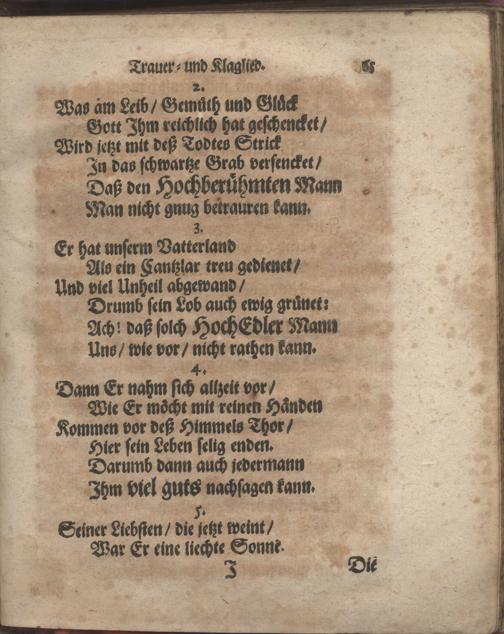 Trauer- und Klaglied. 65
2.
Was am Leib / Gemüth und Glück
Gott Ihm reichlich hat geschencket /
Wird jetzt mit deß Todtes Strick
In das schwartze Grab versencket /
Daß den Hochberühmten Mann
Man nicht gnug betrauren kann.
3.
Er hat unserm Vatterland
Als ein Cantzlar treu gedienet /
Und viel Unheil abgewand /
Drumb sein Lob auch ewig grünet:
Ach! daß solch HochEdler Mann
Uns / wie vor / nicht rathen kann.
4.
Dann Er nahm sich allzeit vor /
Wie Er möcht mit reinen Händen
Kommen vor deß Himmels Thor /
Hier sein Leben selig enden.
Darumb dann auch jedermann
Ihm viel guts nachsagen kann.
5.
Seiner Liebsten / die jetzt weint /
War Er eine liechte Sonne.
J Die